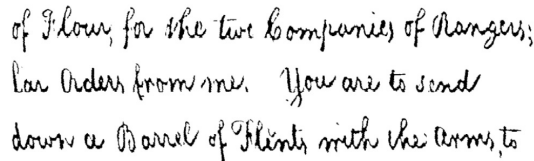 of Flour, for the two Companies of Rangers;
lar Orders from me. You are to send
down a Barrel of Flints with the Arms, to